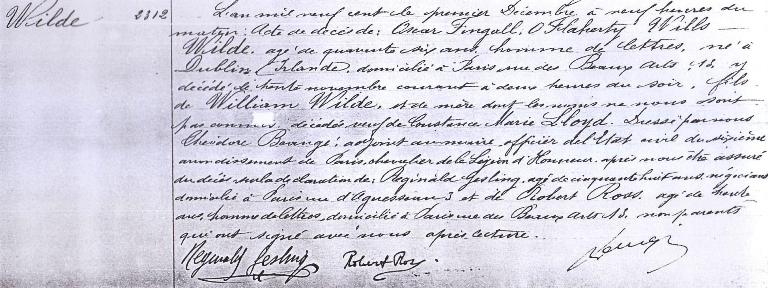 Wilde 2312
L'an mil neuf cent le premier Décembre à neuf heures du
matin: Acte de décès de: Oscar Fingall, O Flaherty Wills
Wilde, agé de quarante six ans, homme de lettres, né à
Dublin (Irlande, domicilié à Paris rue des Beaux Arts, 13, y
décédé le trente novembre courant à deux heures du soir, fils
de William Wilde, et de mère dont les noms ne nous sont
pas connus décédés, veuf de Constance Marie Lloyd. Dressé par nous
adjoint au maire, officier de l'Etat civil du sixième
arrondissement de Paris, chevalier de la Légion d'Honneur, après nous être assuré
du décès sur la déclaration de: Reginald Gesling, agé de cinquante huit ans, négociant
domicilié à Paris rue d'Aguesseau, 3 et de Robert Ross, agé de trente
ans, homme de lettres, domicilié à Paris rue des Beaux Arts 13, non parents
qui ont signé avec nous après lecture.
Reginald Gesling Robert Ross.